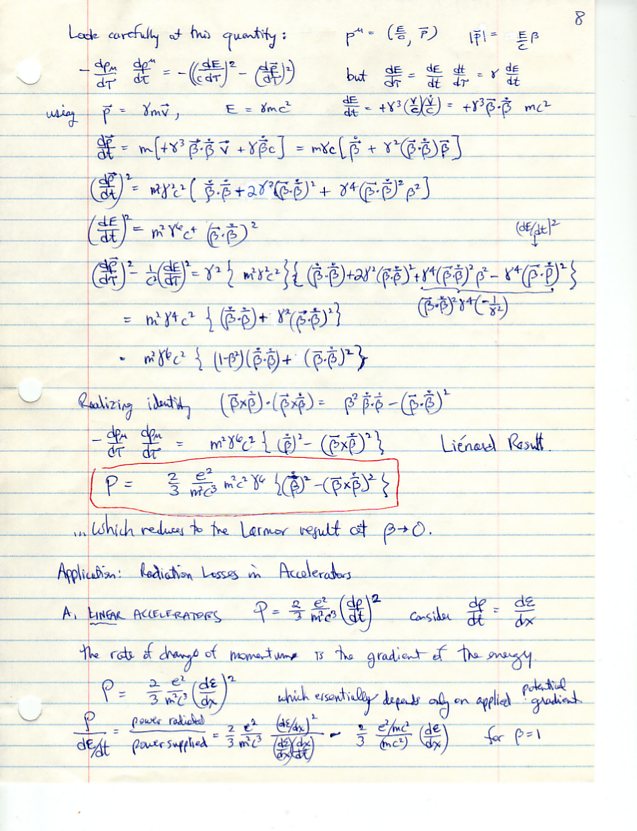 8
Look carefully at this quantity: p^μ = (E/c, p⃗) |p⃗| = E/c β
- dp_μ/dτ dp^μ/dτ = -((dE/cdτ)² - (dp⃗/dτ)²) but dE/dτ = dE/dt dt/dτ = γ dE/dt
using p⃗ = γmv⃗, E = γmc² dE/dt = +γ³(v/c)(v̇/c) = +γ³β⃗·β⃗̇ mc²
dp⃗/dt = m[+γ³ β⃗·β⃗̇ v⃗ + γβ⃗̇c] = mγc[β⃗̇ + γ²(β⃗·β⃗̇)β⃗]
(dp⃗/dt)² = m²γ²c²(β⃗̇·β⃗̇ + 2γ²(β⃗·β⃗̇)² + γ⁴(β⃗·β⃗̇)²β²]
(dE/dt)² = m²γ⁶c⁴ (β⃗·β⃗̇)² (dE/dt)²
(dp⃗/dτ)² - 1/c²(dE/dτ)² = γ² { m²γ²c² } { (β⃗̇·β⃗̇) + 2γ²(β⃗·β⃗̇)² + γ⁴(β⃗·β⃗̇)²β² - γ⁴(β⃗·β⃗̇)² }
= m²γ⁴c² { (β⃗̇·β⃗̇) + γ²(β⃗·β⃗̇)² } (β⃗·β⃗̇)²γ⁴(-1/γ²)
= m²γ⁶c² { (1-β²)(β⃗̇·β⃗̇) + (β⃗·β⃗̇)² }
Realizing identity (β⃗×β⃗̇)·(β⃗×β⃗̇) = β² β⃗̇·β⃗̇ - (β⃗·β⃗̇)²
- dp_μ/dτ dp^μ/dτ = m²γ⁶c² { (β⃗̇)² - (β⃗×β⃗̇)² } Liénard Result.
P = 2/3 e²/m²c³ m²c² γ⁶ { (β⃗̇)² - (β⃗×β⃗̇)² }
... Which reduces to the Larmor result at β→0.
Application: Radiation Losses in Accelerators
A. LINEAR ACCELERATORS P = 2/3 e²/m²c³ (dp/dt)² consider dp/dt = dE/dx
the rate of change of momentum is the gradient of the energy
P = 2/3 e²/m²c³ (dE/dx)² which essentially depends only on applied potential gradient
P/dE/dt = power radiated/power supplied = 2/3 e²/m²c³ (dE/dx)²/(dE/dx)(dx/dt) ~ 2/3 e²/mc²/(mc²) (dE/dx) for β=1